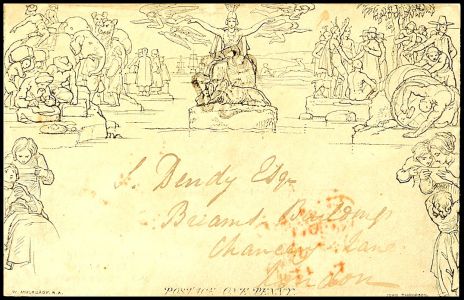 S. Dendy Esqr
Breams Buildings
Chancery Lane
London
POSTAGE ONE PENNY
W. MULREADY. R.A.
JOHN THOMPSON.